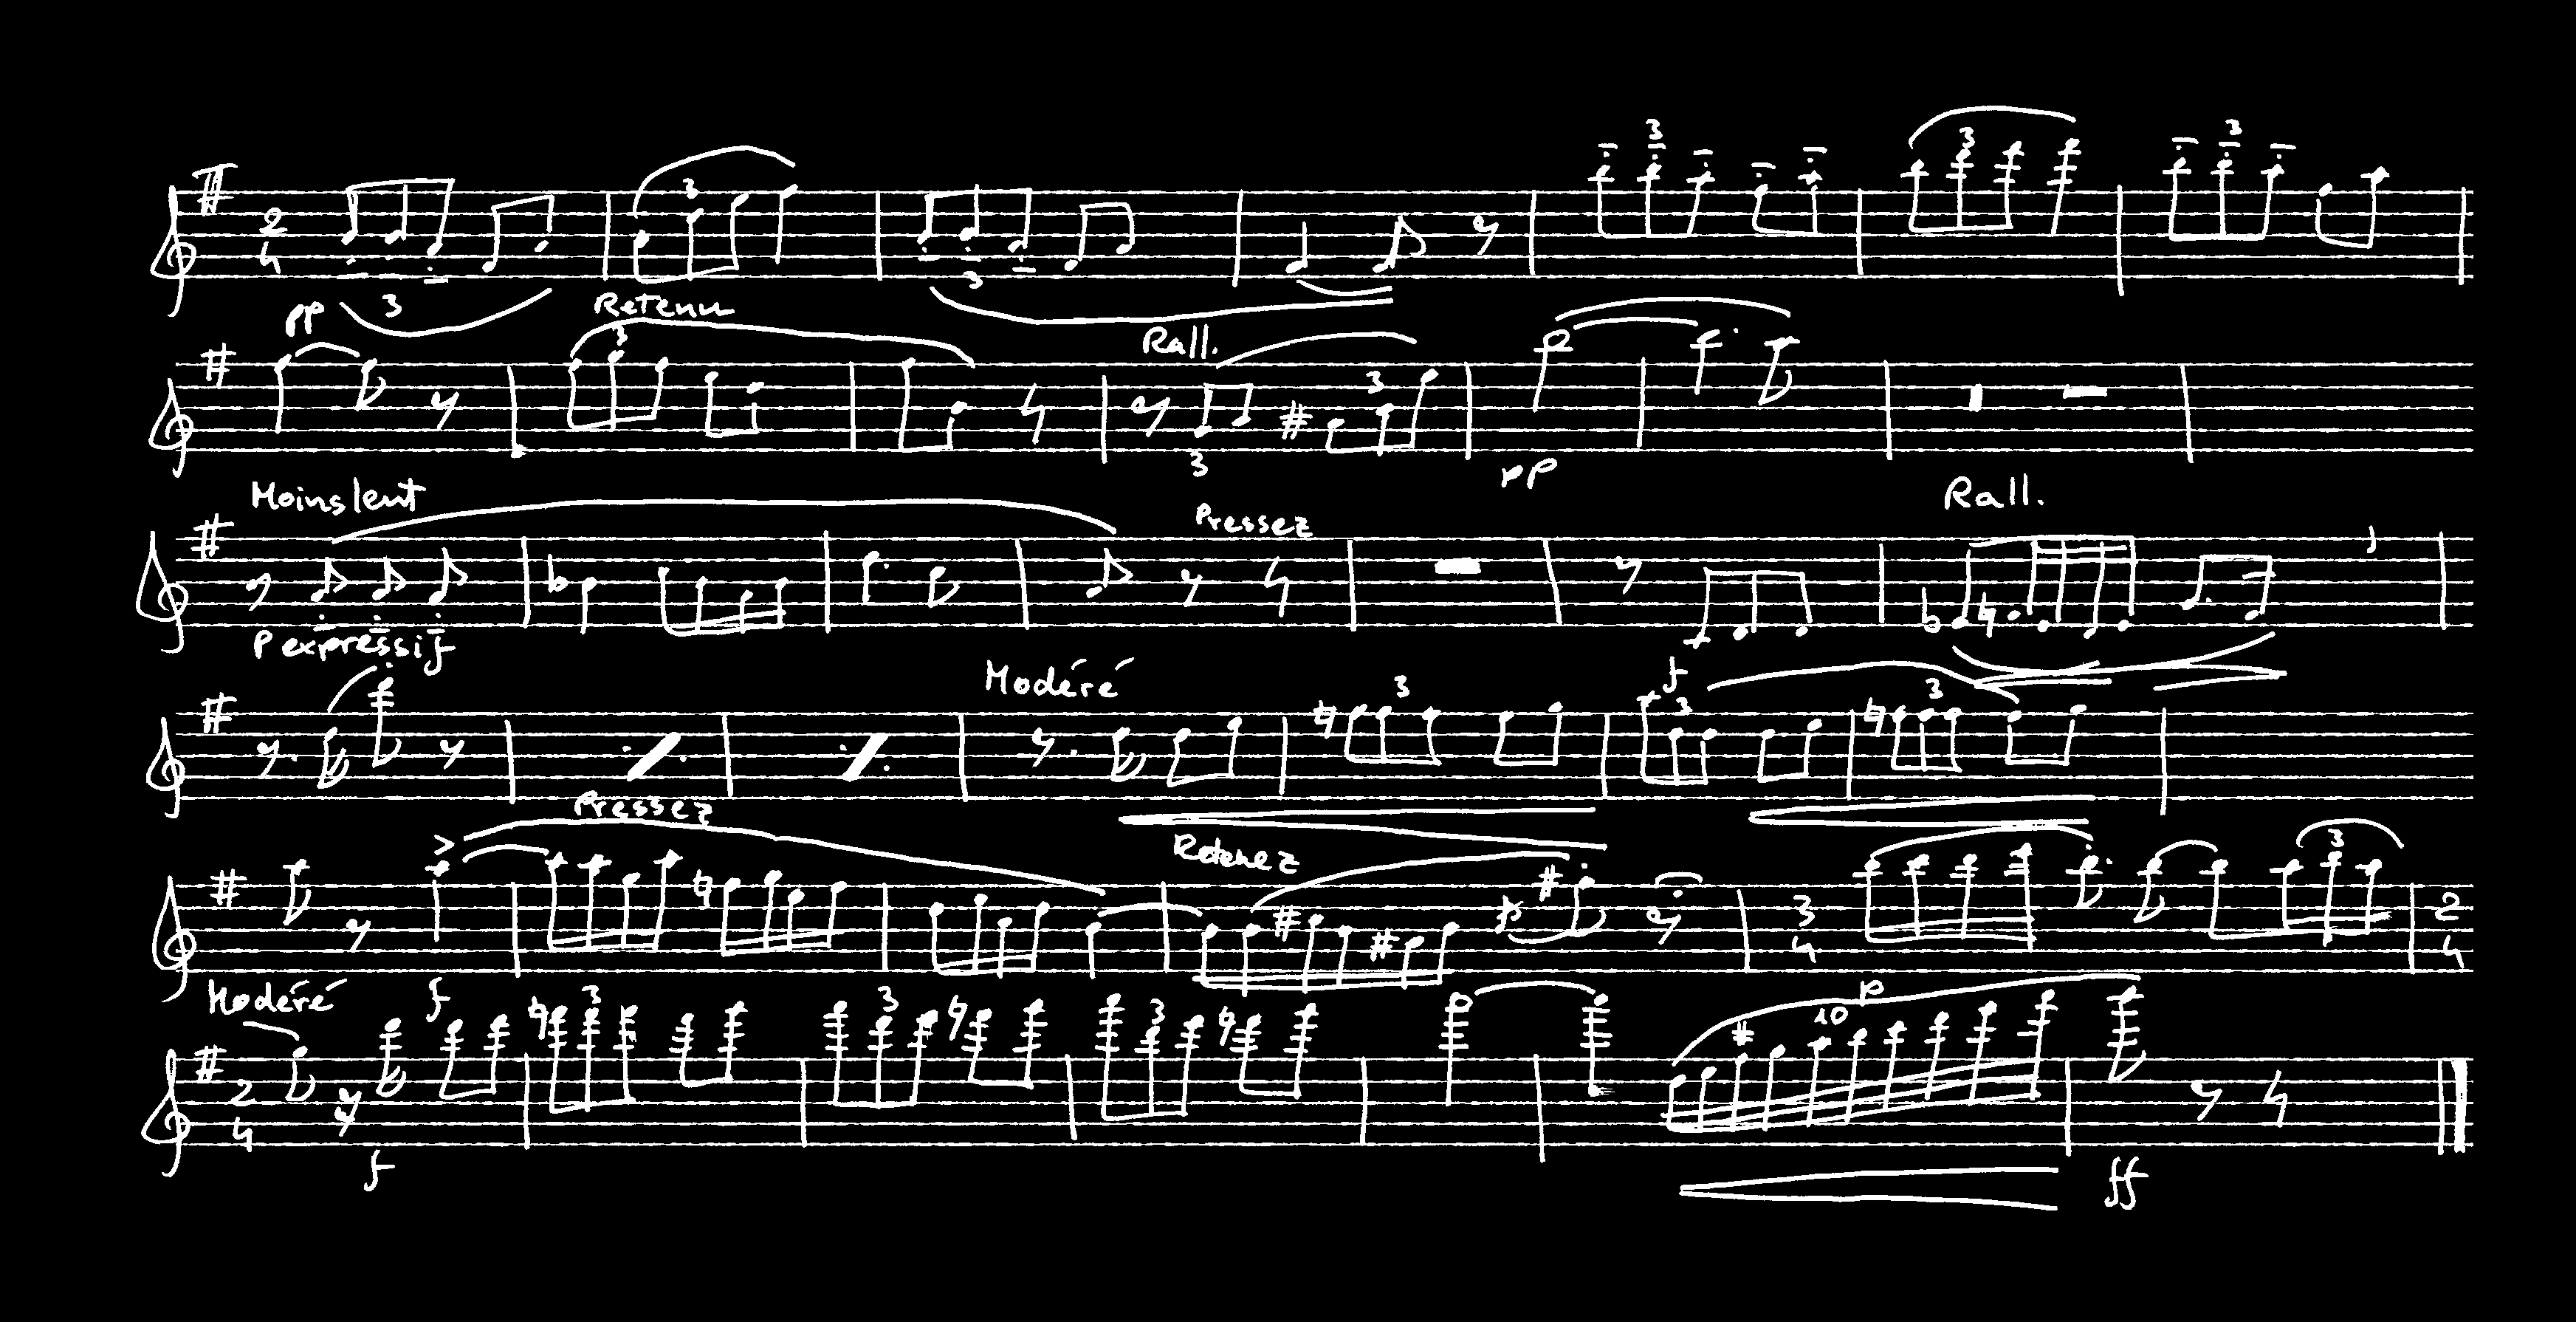 2 4 3 3 3 3 3
pp 3 Retenu
3 Rall. 3
3 pp
Moins lent Pressez Rall.
P expressif f
Modéré 3 3 3
Pressez Retenez 3
3 4 2 4
Modéré f 3 3 3 p 10
2 4
f ff